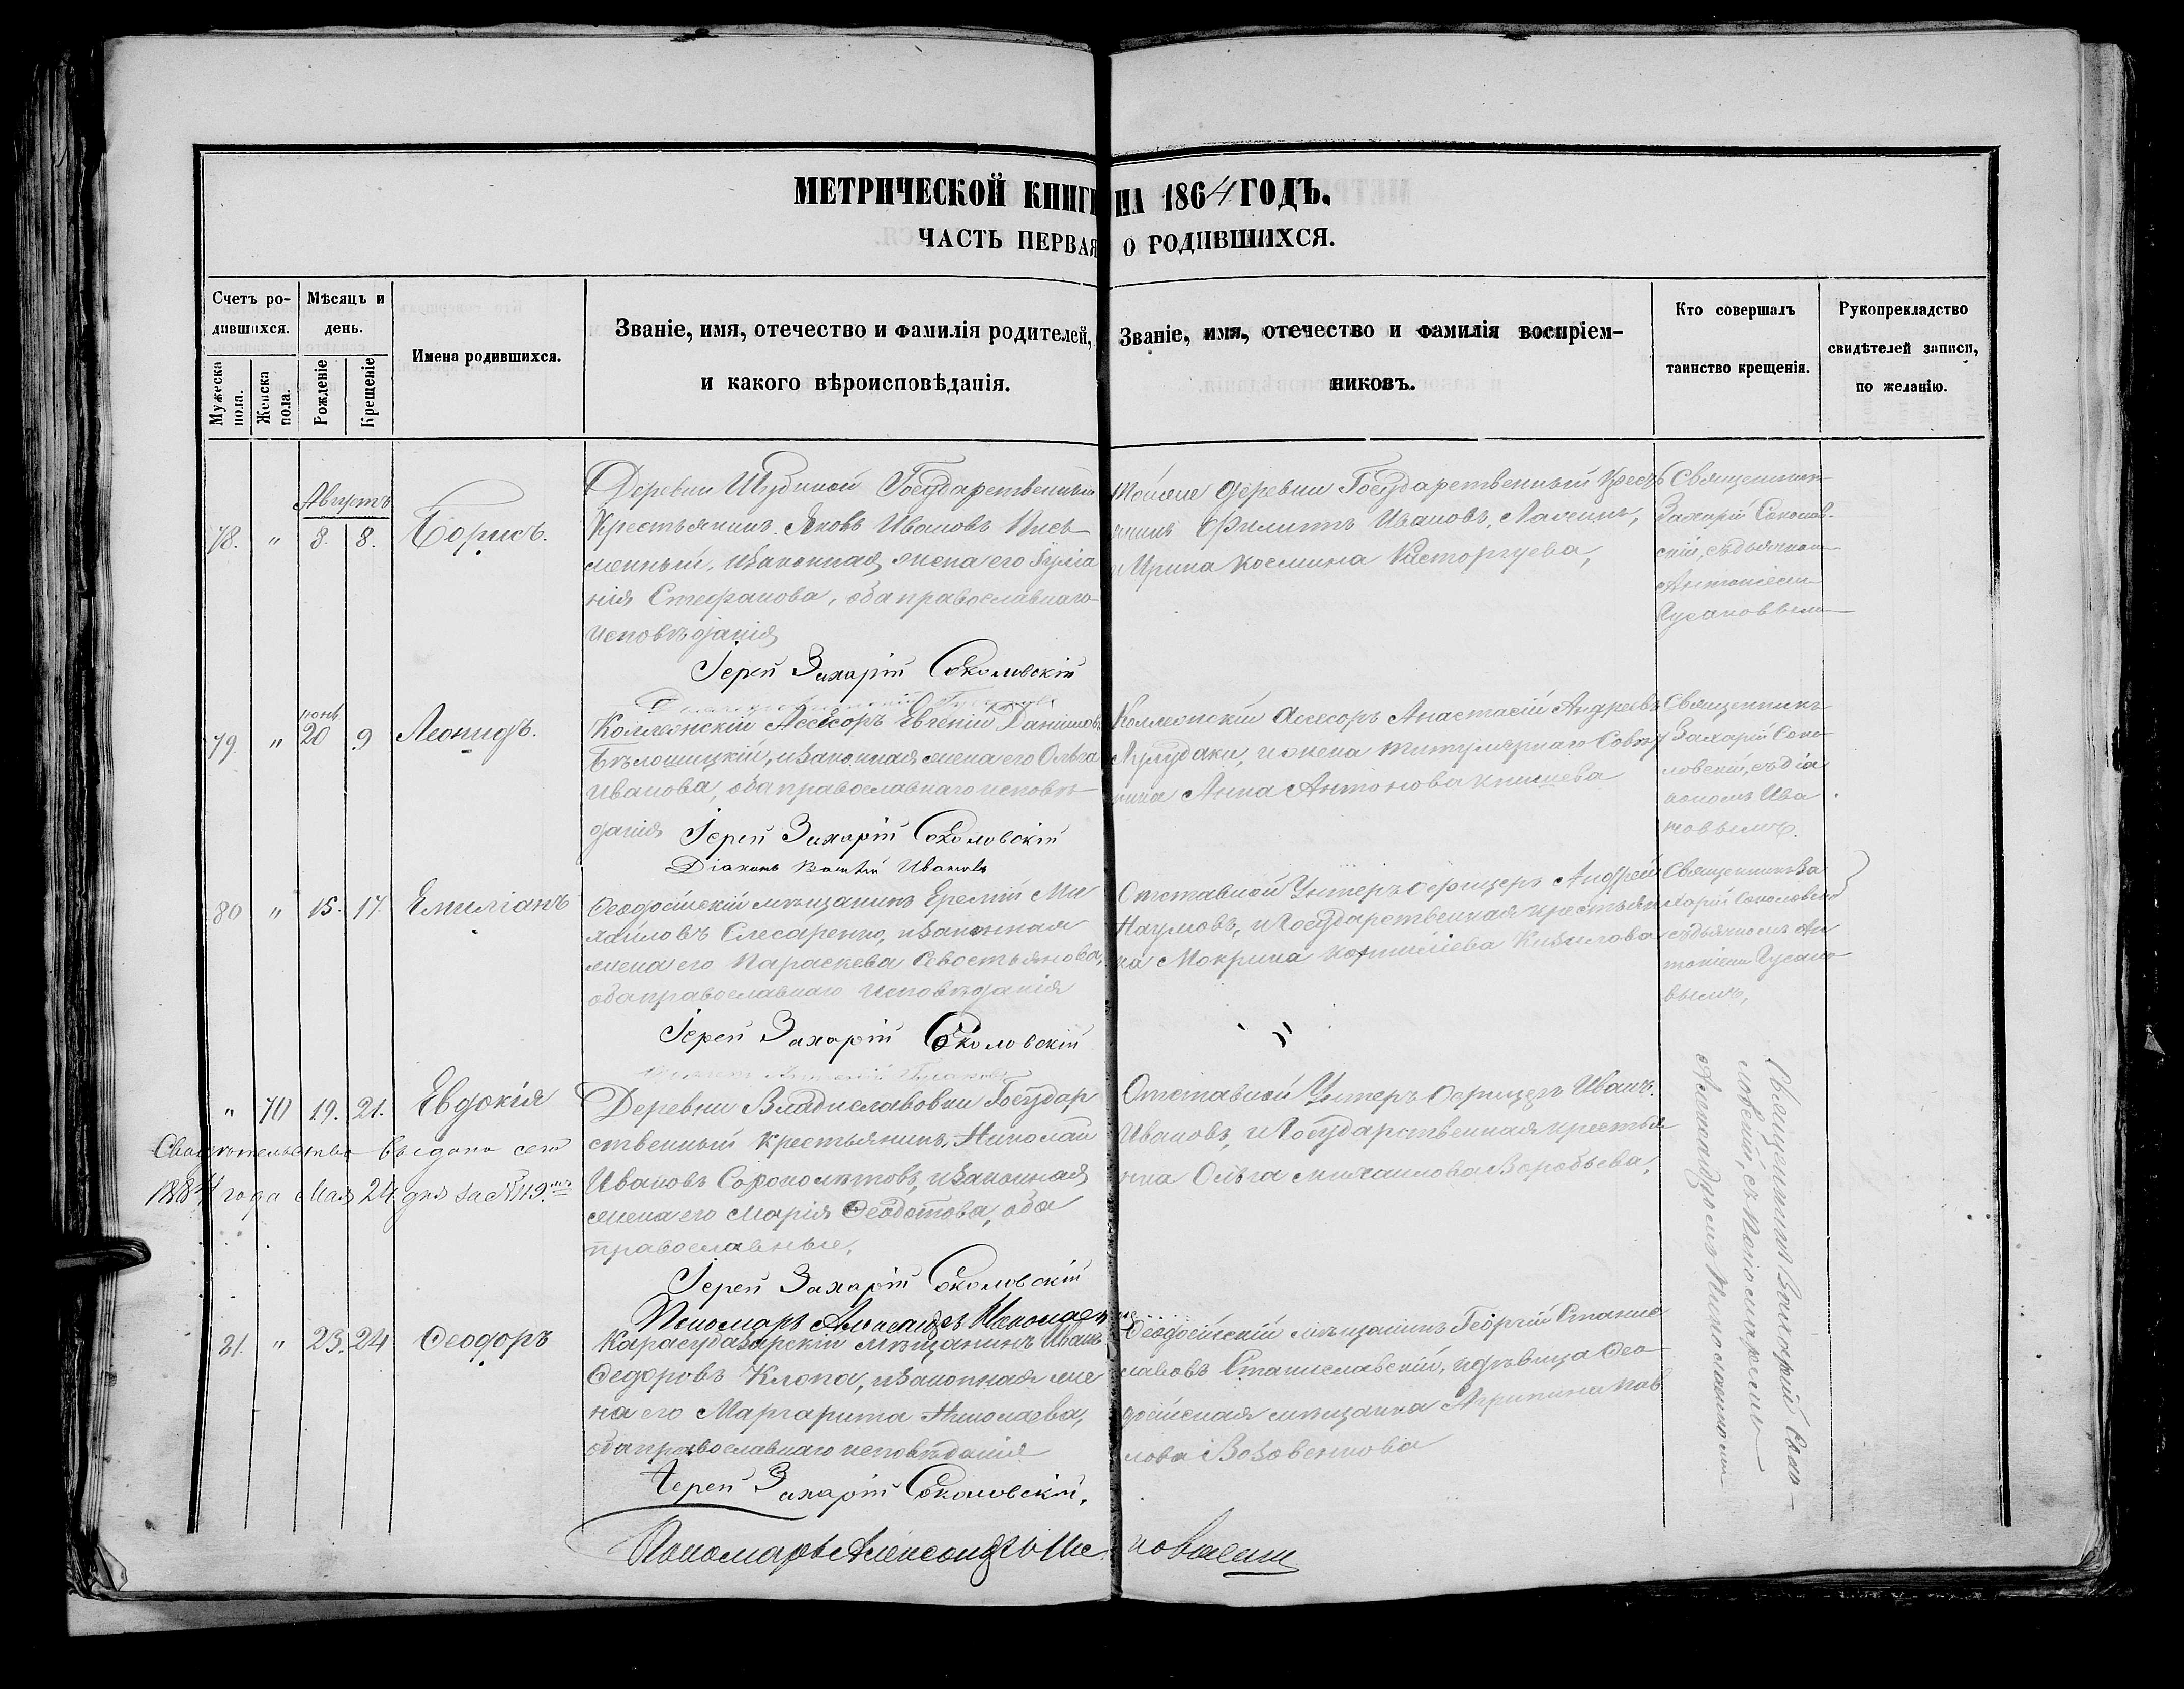 МЕТРИЧЕСКОЙ КНИГИ НА 1864 ГОДЪ.
ЧАСТЬ ПЕРВАЯ О РОДИВШИХСЯ.
Счетъ ро-
дившихся.
Мужеска
пола.
Женска
пола.
Мѣсяцъ и
день.
Рожденіе
Крещеніе
Имена родившихся.
Званіе, имя, отечество и фамилія родителей,
и какого вѣроисповѣданія.
Званіе, имя, отечество и фамилія воспріем-
никовъ.
Кто совершалъ
таинство крещенія.
Рукоприкладство
свидѣтелей записи,
по желанію.
Августъ
78. " 8. 8. Борисъ.
Деревни Государственный
Крестьянинъ Яковъ Ивановъ Пись-
менный, и законная жена его Іулiа
нія Стефанова, оба православнаго
исповѣданія
Іерей Захарій Соколовскій
Тойже деревни Государственный Крест
янинъ Филипъ Ивановъ
и Ирина Космина Расторгуева,
Священникъ
Захарій Соколов-
скій, съ дьячкомъ
Антоніемъ
Гусаковымъ
79. " 20 9 Леонидъ.
Коллежскій Ассесоръ Евгеній Даніиловъ
Бѣлошицкій, и законная жена его Ольга
Иванова, оба православнаго исповѣ-
данія
Іерей Захарій Соколовскій
Діаконъ Ивановъ
Коллежскій Ассесоръ Анастасій Андреевъ
и жена титулярнаго Совѣт
ника Анна Антонова
Священникъ
Захарій Соко-
ловскій, съ діа
кономъ Ива
новымъ.
80 " 15. 17. Емиліанъ
Ѳеодосійскій мѣщанинъ Еремій Ми
хайловъ Слесаренко, и законная
жена его Параскева Севостьянова,
оба православнаго исповѣданія
Іерей Захарій Соколовскій
Отставной Унтеръ Офицеръ Андрей
Наумовъ, и Государственная крестьян
ка Мокрина Корниліева
Священникъ За
харій Соколовскій
съ дьячкомъ Ан
тоніемъ Гусако
вымъ,
" 70 19. 21. Евдокія
Свидѣтельство выдано сего
1884 года Мая 24 дня за № 119.мъ
Деревни Владиславовки Государ
ственный крестьянинъ Николай
Ивановъ Сороколѣтовъ, и законная
жена его Марія Ѳеодотова, оба
православные,
Іерей Захарій Соколовскій
Пономарь
Отставной Унтеръ Офицеръ Иванъ
Ивановъ, и Государственная крестья
нка Ольга Михаилова Воробьева,
Священникъ Захарій Соко-
ловскій, съ пономаремъ
81. " 23. 24 Ѳеодоръ
Карасубазарскій мѣщанинъ Иванъ
Ѳедоровъ Клопа, и законная же
на его Маргарита Николаева,
оба православнаго исповѣданія
Іерей Захарій Соколовскій,
Ѳеодосійскій мѣщанинъ Георгій Станис
лавовъ Станиславскій, и дѣвица Ѳео-
досійская мѣщанка Агрипина Пав
лова
Пономарь